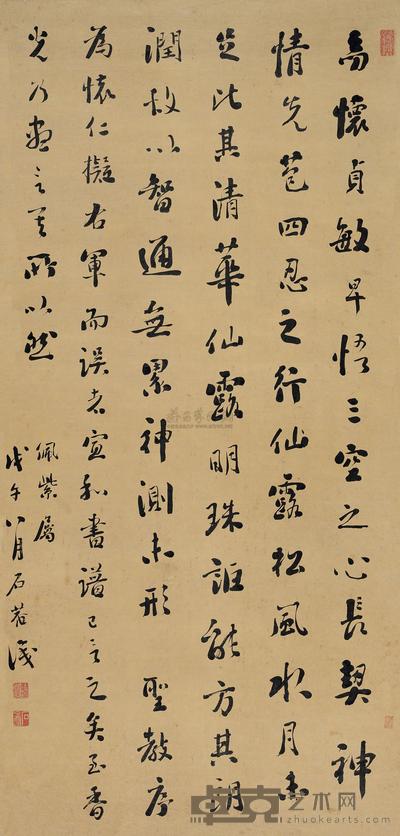 而懷貞敏早悟三空之心長契神
情先苞四忍之行仙露松風水月未
足比其清華仙露明珠詎能方其朗
潤故以智通無累神測未形 聖教序
為懷仁擬右軍而误者宣和書譜已言之矣至香
光乃盡言其所以然
佩紫屬
戊午八月石菴識
卓克艺术网
www.zhuokearts.com